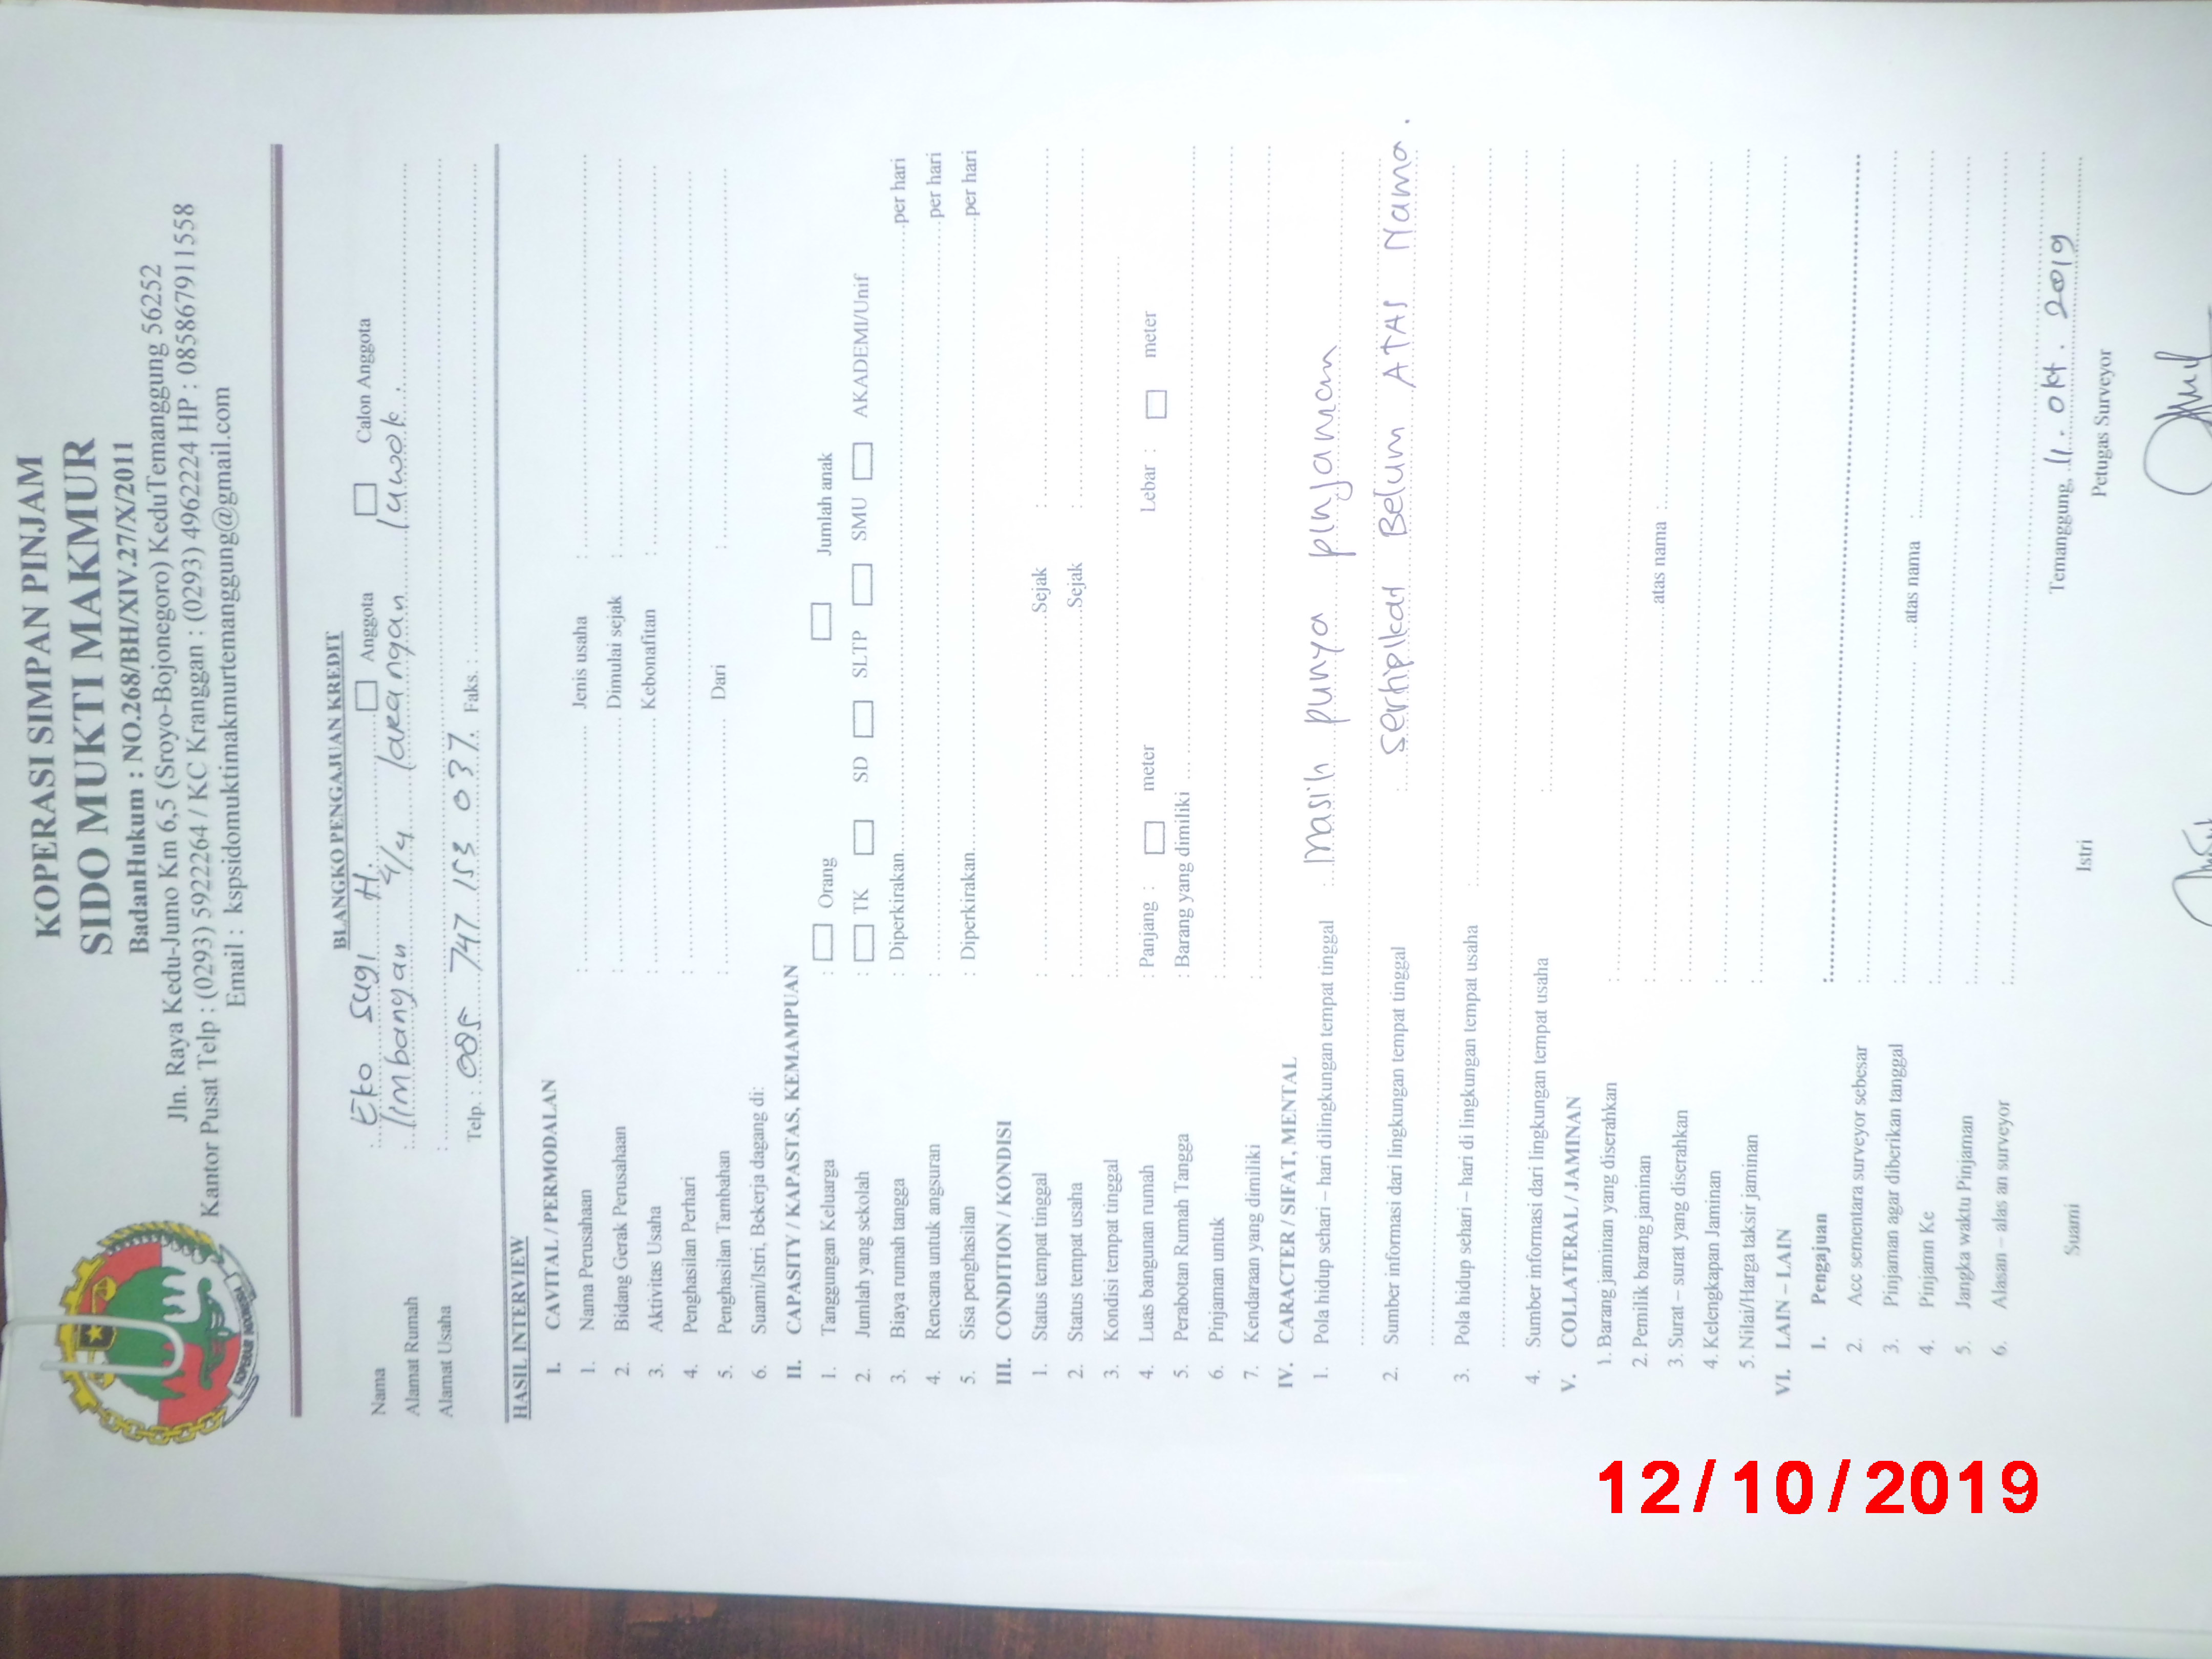 KOPERASI SIMPAN PINJAM
SIDO MUKTI MAKMUR
BadanHukum : NO.268/BH/XIV.27/X/2011
Jln. Raya Kedu-Jumo Km 6,5 (Sroyo-Bojonegoro) KeduTemanggung 56252
Kantor Pusat Telp : (0293) 5922264 / KC Kranggan : (0293) 4962224 HP : 085867911558
Email : kspsidomuktimakmurtemanggung@gmail.com
KOPERASI INDONESIA
BLANGKO PENGAJUAN KREDIT
Nama : Eko Sugi H. Anggota Calon Anggota
Alamat Rumah : limbangan 4/4 larangan luwok.
Alamat Usaha :
Telp. : 085 747 153 037. Faks. :
HASIL INTERVIEW
I. CAVITAL / PERMODALAN
1. Nama Perusahaan : Jenis usaha :
2. Bidang Gerak Perusahaan : Dimulai sejak :
3. Aktivitas Usaha : Kebonafitan :
4. Penghasilan Perhari :
5. Penghasilan Tambahan : Dari :
6. Suami/Istri, Bekerja dagang di:
II. CAPASITY / KAPASTAS, KEMAMPUAN
1. Tanggungan Keluarga : Orang Jumlah anak
2. Jumlah yang sekolah : TK SD SLTP SMU AKADEMI/Unif
3. Biaya rumah tangga : Diperkirakan per hari
4. Rencana untuk angsuran : per hari
5. Sisa penghasilan : Diperkirakan per hari
III. CONDITION / KONDISI
1. Status tempat tinggal : Sejak :
2. Status tempat usaha : Sejak :
3. Kondisi tempat tinggal :
4. Luas bangunan rumah : Panjang : meter Lebar : meter
5. Perabotan Rumah Tangga : Barang yang dimiliki
6. Pinjaman untuk :
7. Kendaraan yang dimiliki :
IV. CARACTER / SIFAT, MENTAL
1. Pola hidup sehari – hari dilingkungan tempat tinggal : Masih punya pinjaman
2. Sumber informasi dari lingkungan tempat tinggal : Sertipikat Belum ATAS Nama.
3. Pola hidup sehari – hari di lingkungan tempat usaha :
4. Sumber informasi dari lingkungan tempat usaha :
V. COLLATERAL / JAMINAN
1. Barang jaminan yang diserahkan :
2. Pemilik barang jaminan : atas nama :
3. Surat – surat yang diserahkan :
4. Kelengkapan Jaminan :
5. Nilai/Harga taksir jaminan :
VI. LAIN – LAIN
1. Pengajuan :
2. Acc sementara surveyor sebesar :
3. Pinjaman agar diberikan tanggal :
4. Pinjamn Ke : atas nama :
5. Jangka waktu Pinjaman :
6. Alasan – alas an surveyor :
Temanggung, 11. Okt. 2019
Suami Istri Petugas Surveyor
12/10/2019